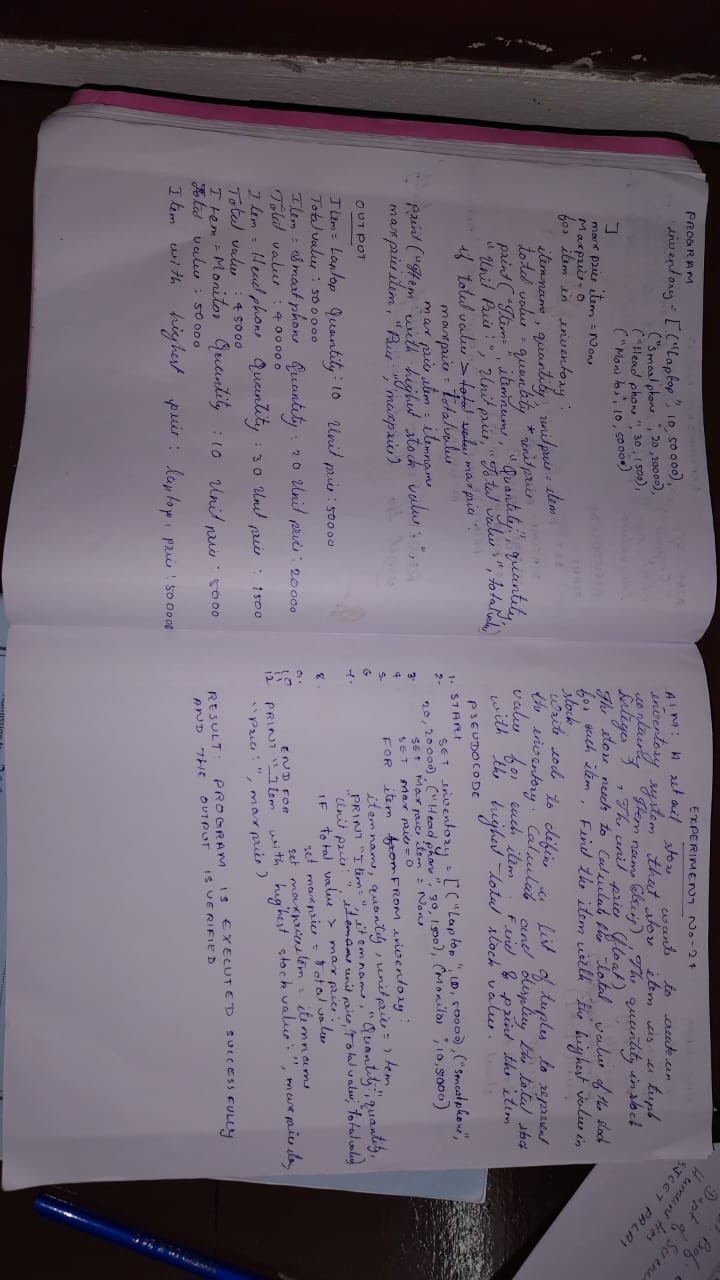 PROGRAM
inventory = [("Laptop", 10, 50000),
("Smart phone", 20, 20000),
("Head phone", 30, 1500),
("Monitor", 10, 5000)
]
max price item = None
Maxprice = 0
for item in inventory :
itemname, quantity, unitprice = item
total value = quantity * unitprice
print("Item=", itemname, "Quantity:", quantity,
"Unit Price:", Unitprice, "Total value:", totalvalue)
if total value > total value maxprice :
maxprice = totalvalue
max price item = itemname
Print("Item with highest stock value:",
maxpriceitem, "Price:", maxprice)
OUTPUT
Item = Laptop Quantity : 10 Unit price : 50000
Total value : 500000
Item = Smart phone Quantity : 20 Unit price : 20000
Total value : 400000
Item = Head phone Quantity : 30 Unit price : 1500
Total value : 45000
Item = Monitor Quantity : 10 Unit price : 5000
Total value : 50000
Item with highest price : laptop, price : 500000
EXPERIMENT No-27
AIM: A retail store wants to create an
inventory system that store item as a tuple
containing Item name (string), The quantity in stock
(integer), The unit price (float)
The store needs to Calculate the total value of the stock
for each item. Find the item with the highest value in
stock
Write code to define a list of tuples to represent
the inventory. Calculate and display the total stock
value for each item. Find & print the item
with the highest total stock value.
PSEUDOCODE
1. START
2. SET inventory = [("Laptop", 10, 50000), ("Smartphone",
20, 20000), ("Head phone", 30, 1500), (Monitor", 10, 5000)
3. SET Max price item = None
4 SET max price = 0
5. FOR item from FROM inventory :
6 item name, quantity, unitprice = item
7. PRINT "Item=", item name, "Quantity:", quantity,
"Unit price:", itemname unit price, "Total value:", Total value)
8. IF total value > max price :
9. set maxprice = total value
10 set maxpriceitem = itemname
11 END FOR
12 PRINT "Item with highest stock value:", max price item,
"Price:", max price)
RESULT: PROGRAM IS EXECUTED SUCCESSFULLY
AND THE OUTPUT IS VERIFIED
Dept of Science
Humanities
SJCET PALAI